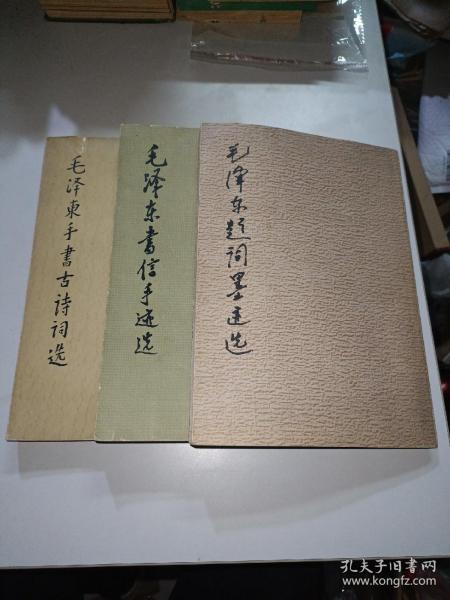 毛泽東手書古詩詞选
毛泽东書信手迹选
毛泽东题词墨迹选
孔夫子旧书网
www.kongfz.com